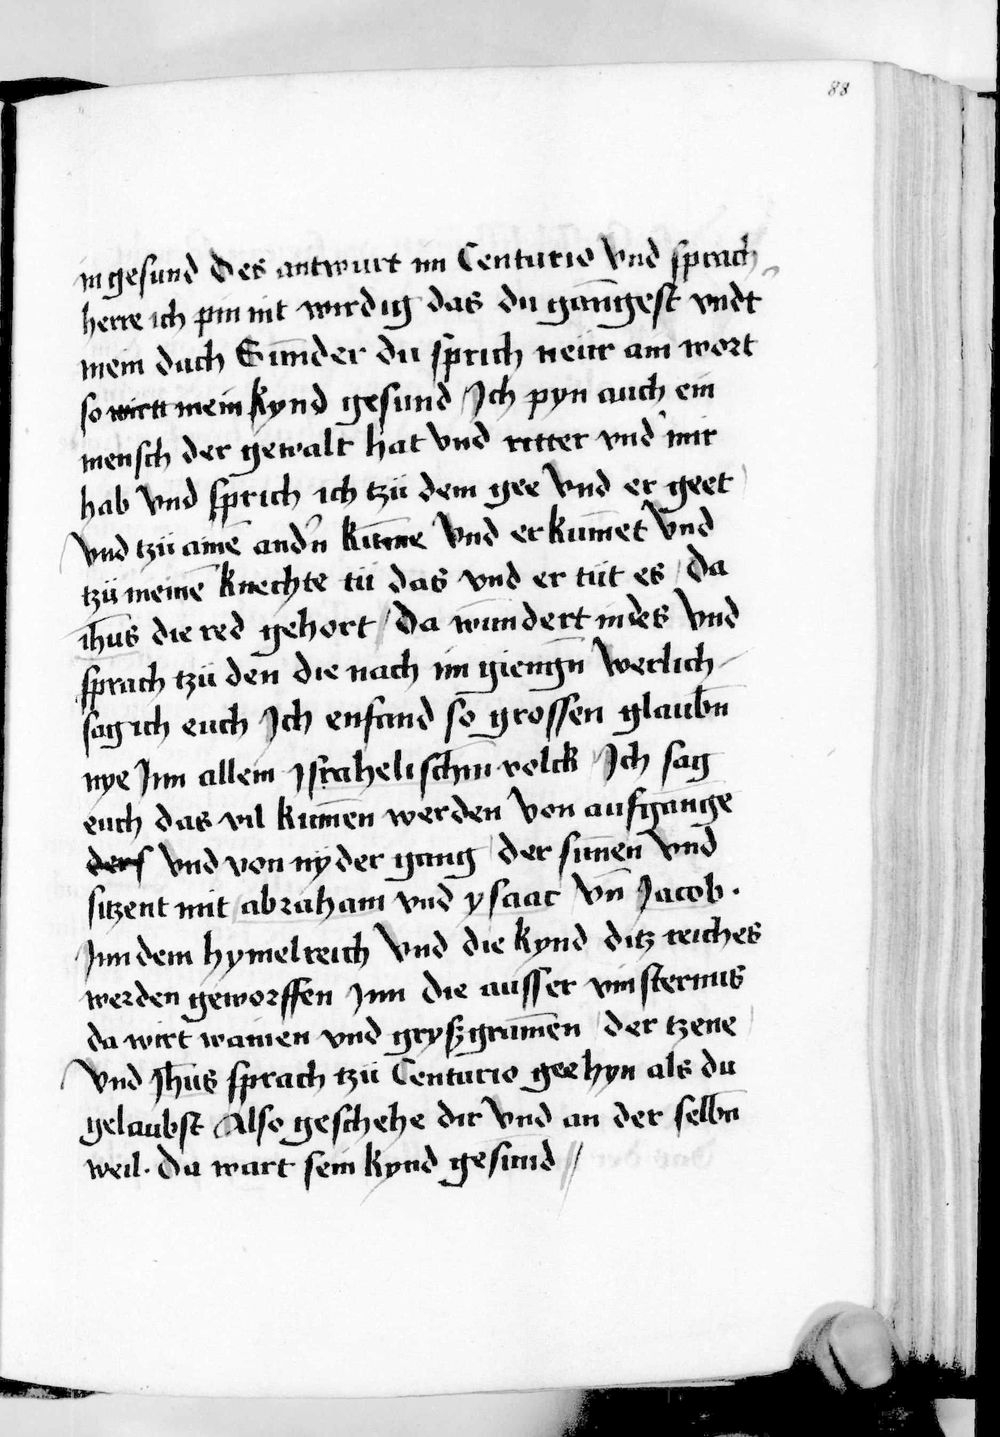 88
in gesund Des antwurt im Centurio Vnd sprach
herre ich pin nit wirdig das du gāngest vndt
mein dach Sūnder du sprich neür am wort
so wirtt mein kynd gesund / Ich pyn auch ein
mensch der gewalt hat Vnd ritter vnd' mir
hab Vnd sprich ich tzü dem gee Vnd er geet
Vnd tzü ainē and'n kūme Vnd er kumēt Vnd
tzü meinē knechte tü das vnd er tüt es / Da
ihūs die red gehort / Da wūndert in des Vnd
sprach tzü den die nach im giengn̄ Werlich
sag ich euch Ich enfand so grossen glaubn̄
nye Inn allem Israhelischn̄ volck / Ich sag
euch das vil kumēn werden Von aufgange
ders Vnd von nyder gang / der sunēn Vnd
sitzent mit abraham vnd ysaac Vn̄ Jacob .
Inn dem hymelreich Vnd die kynd ditz reiches
werden geworffen Inn die ausser vinsternus
da wirt wainen vnd gryszgramēn / der tzene
Vnd Jhūs sprach tzü Centurio gee hyn als du
gelaubst Also geschehe dir Vnd an der selbn̄
weil . Da wart sein kynd gesund //